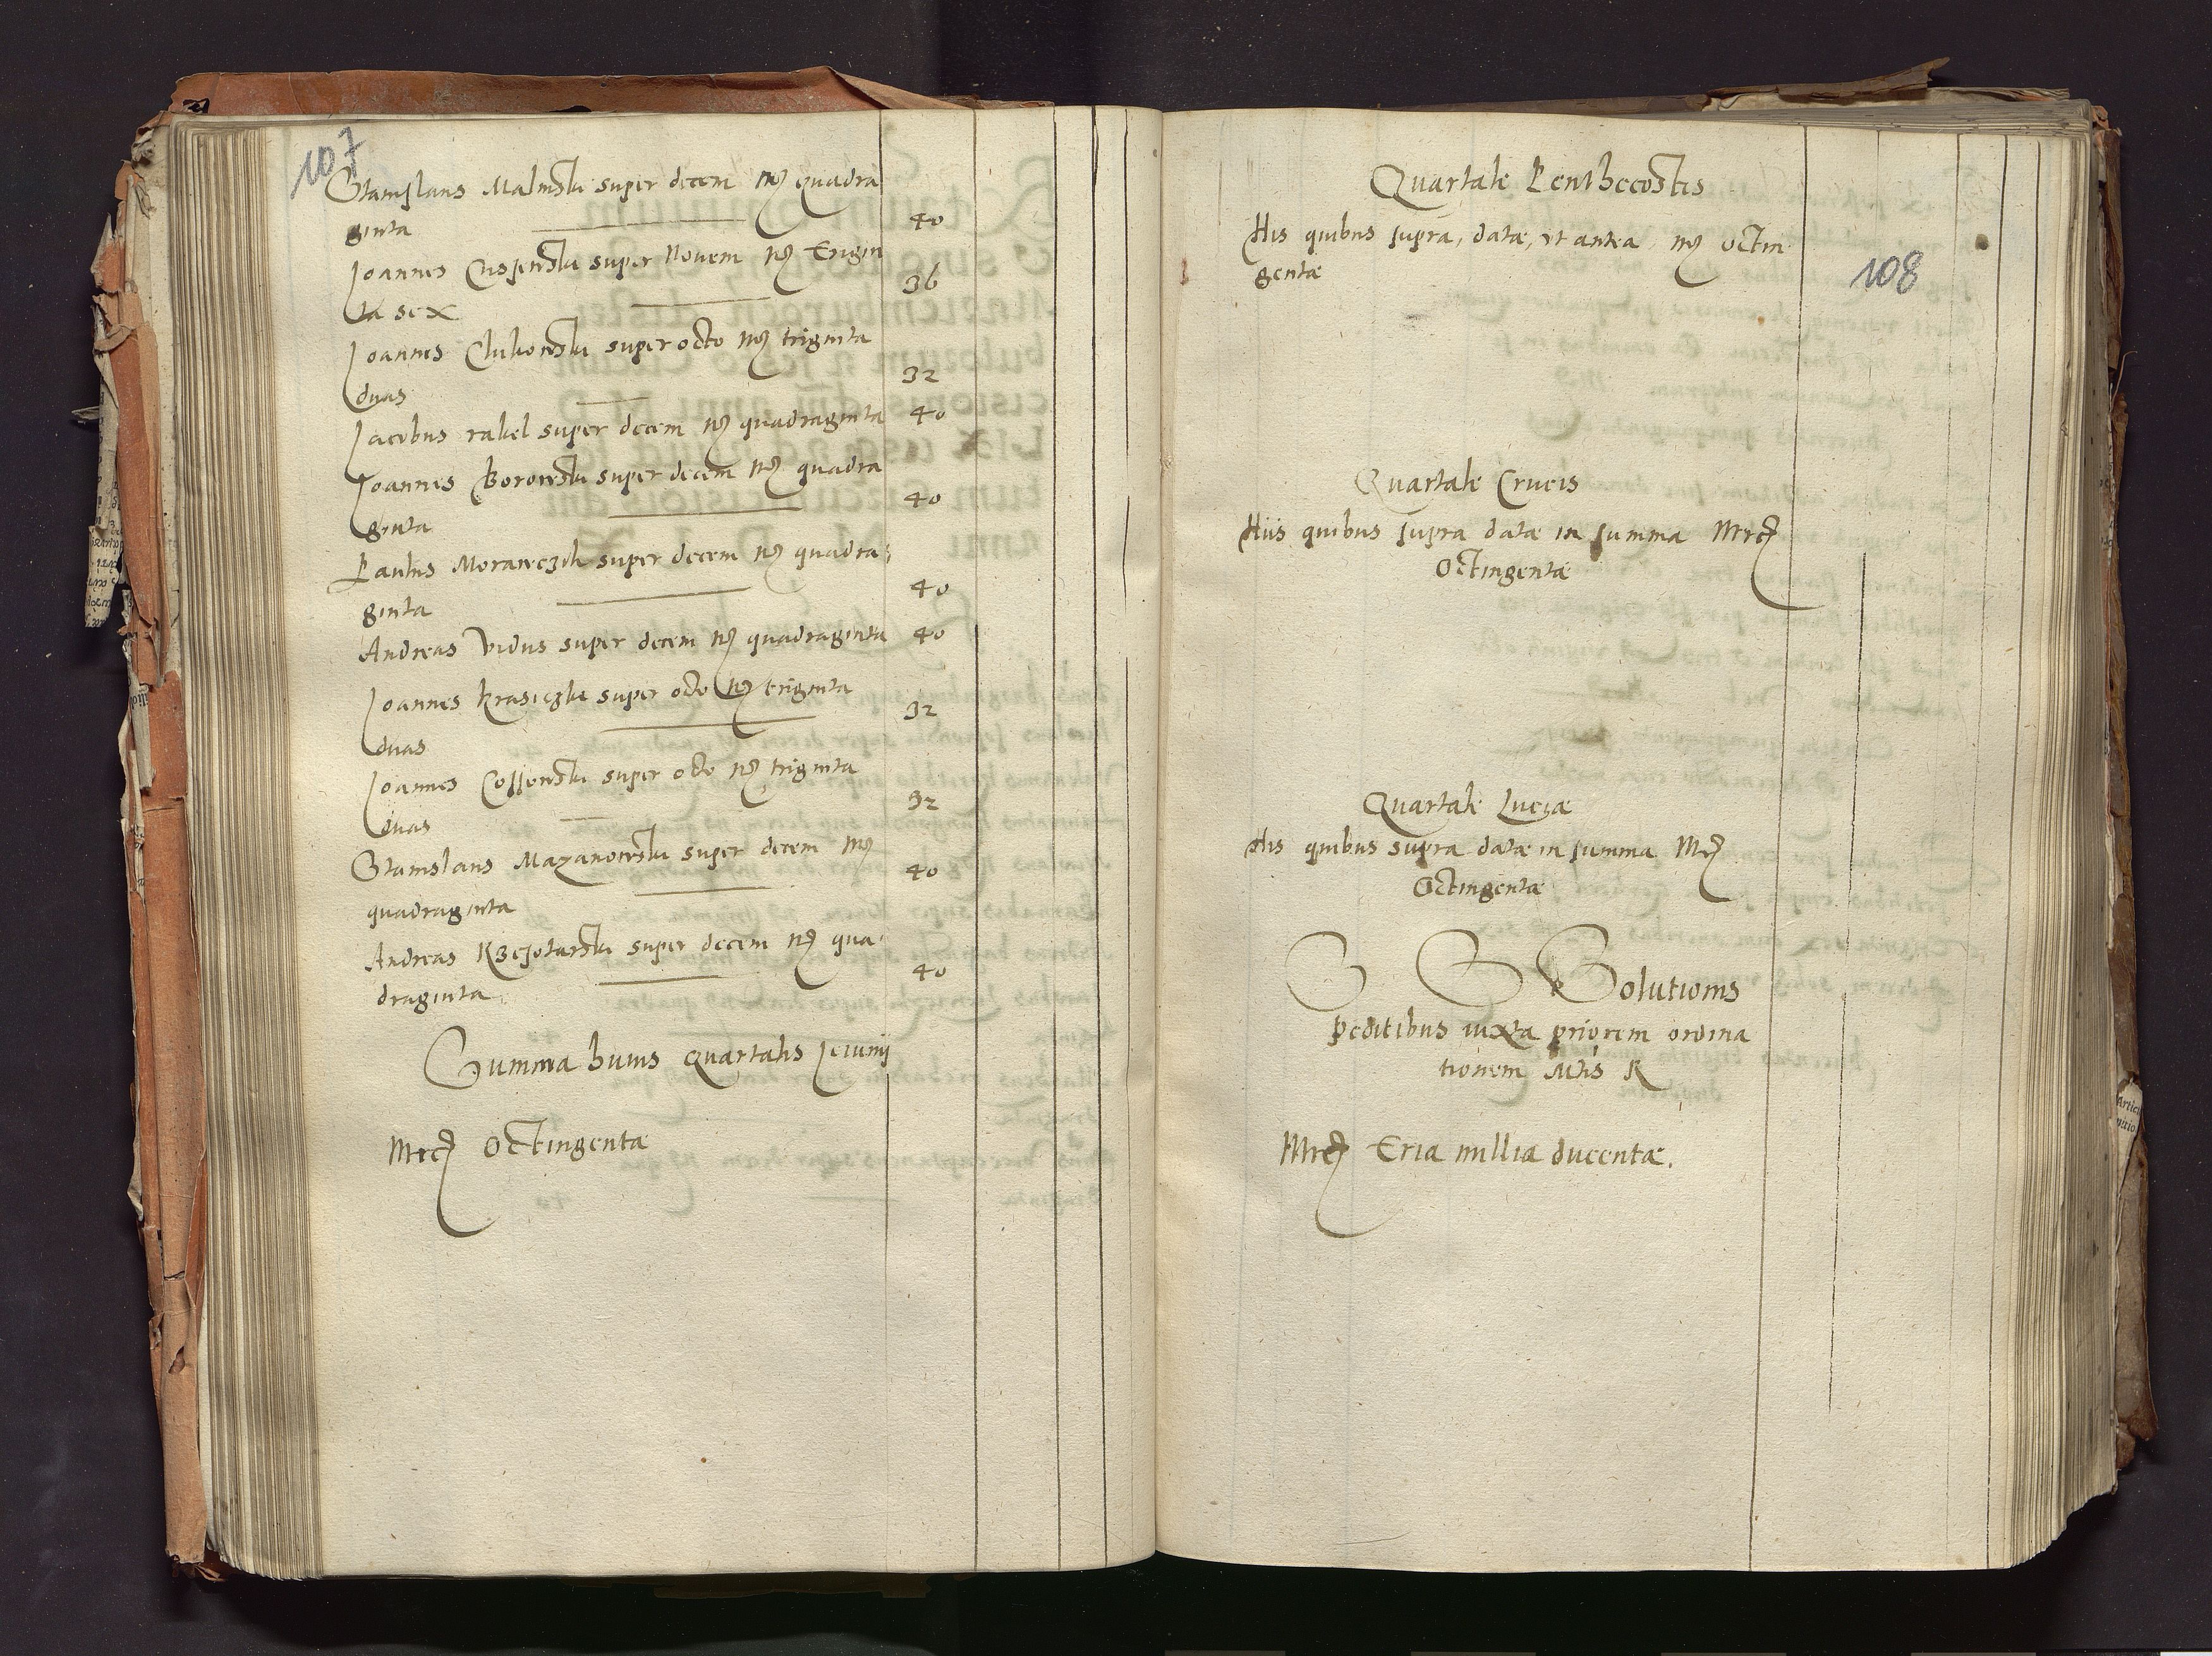 107
Stanislaus Malinski super decem mrc quadra
ginta 40
Joannes super Novem mrc Trigin
ta sex 36
Joannes super octo mrc triginta
duas 32
Jacobus rakel super decem mrc quadraginta 40
Joannes Borowski super decem mrc quadra
ginta 40
Paulus super decem mrc quadra
ginta 40
Andreas Vidus super decem mrc quadraginta 40
Joannes super octo mrc triginta
duas 32
Joannes Cossowski super octo mrc triginta
duas 32
Stanislaus Mazanowski super decem mrc
quadraginta 40
Andreas super decem mrc qua
draginta 40
Summa huius quartalis Jeiunij
Mrc Octingentæ
Quartale Penthecostes
His quibus supra, datæ, ut antea, mrc octin
gentæ
108
Quartale Crucis
Hiis quibus supra datæ in summa Mrc
Octingentæ
Quartale Luciæ
His quibus supra datæ in summa Mrc
Octingentæ
S S Solutionis
peditibus iuxta priorem ordina
tionem Mtis R
Mrc Tria millia ducentæ.